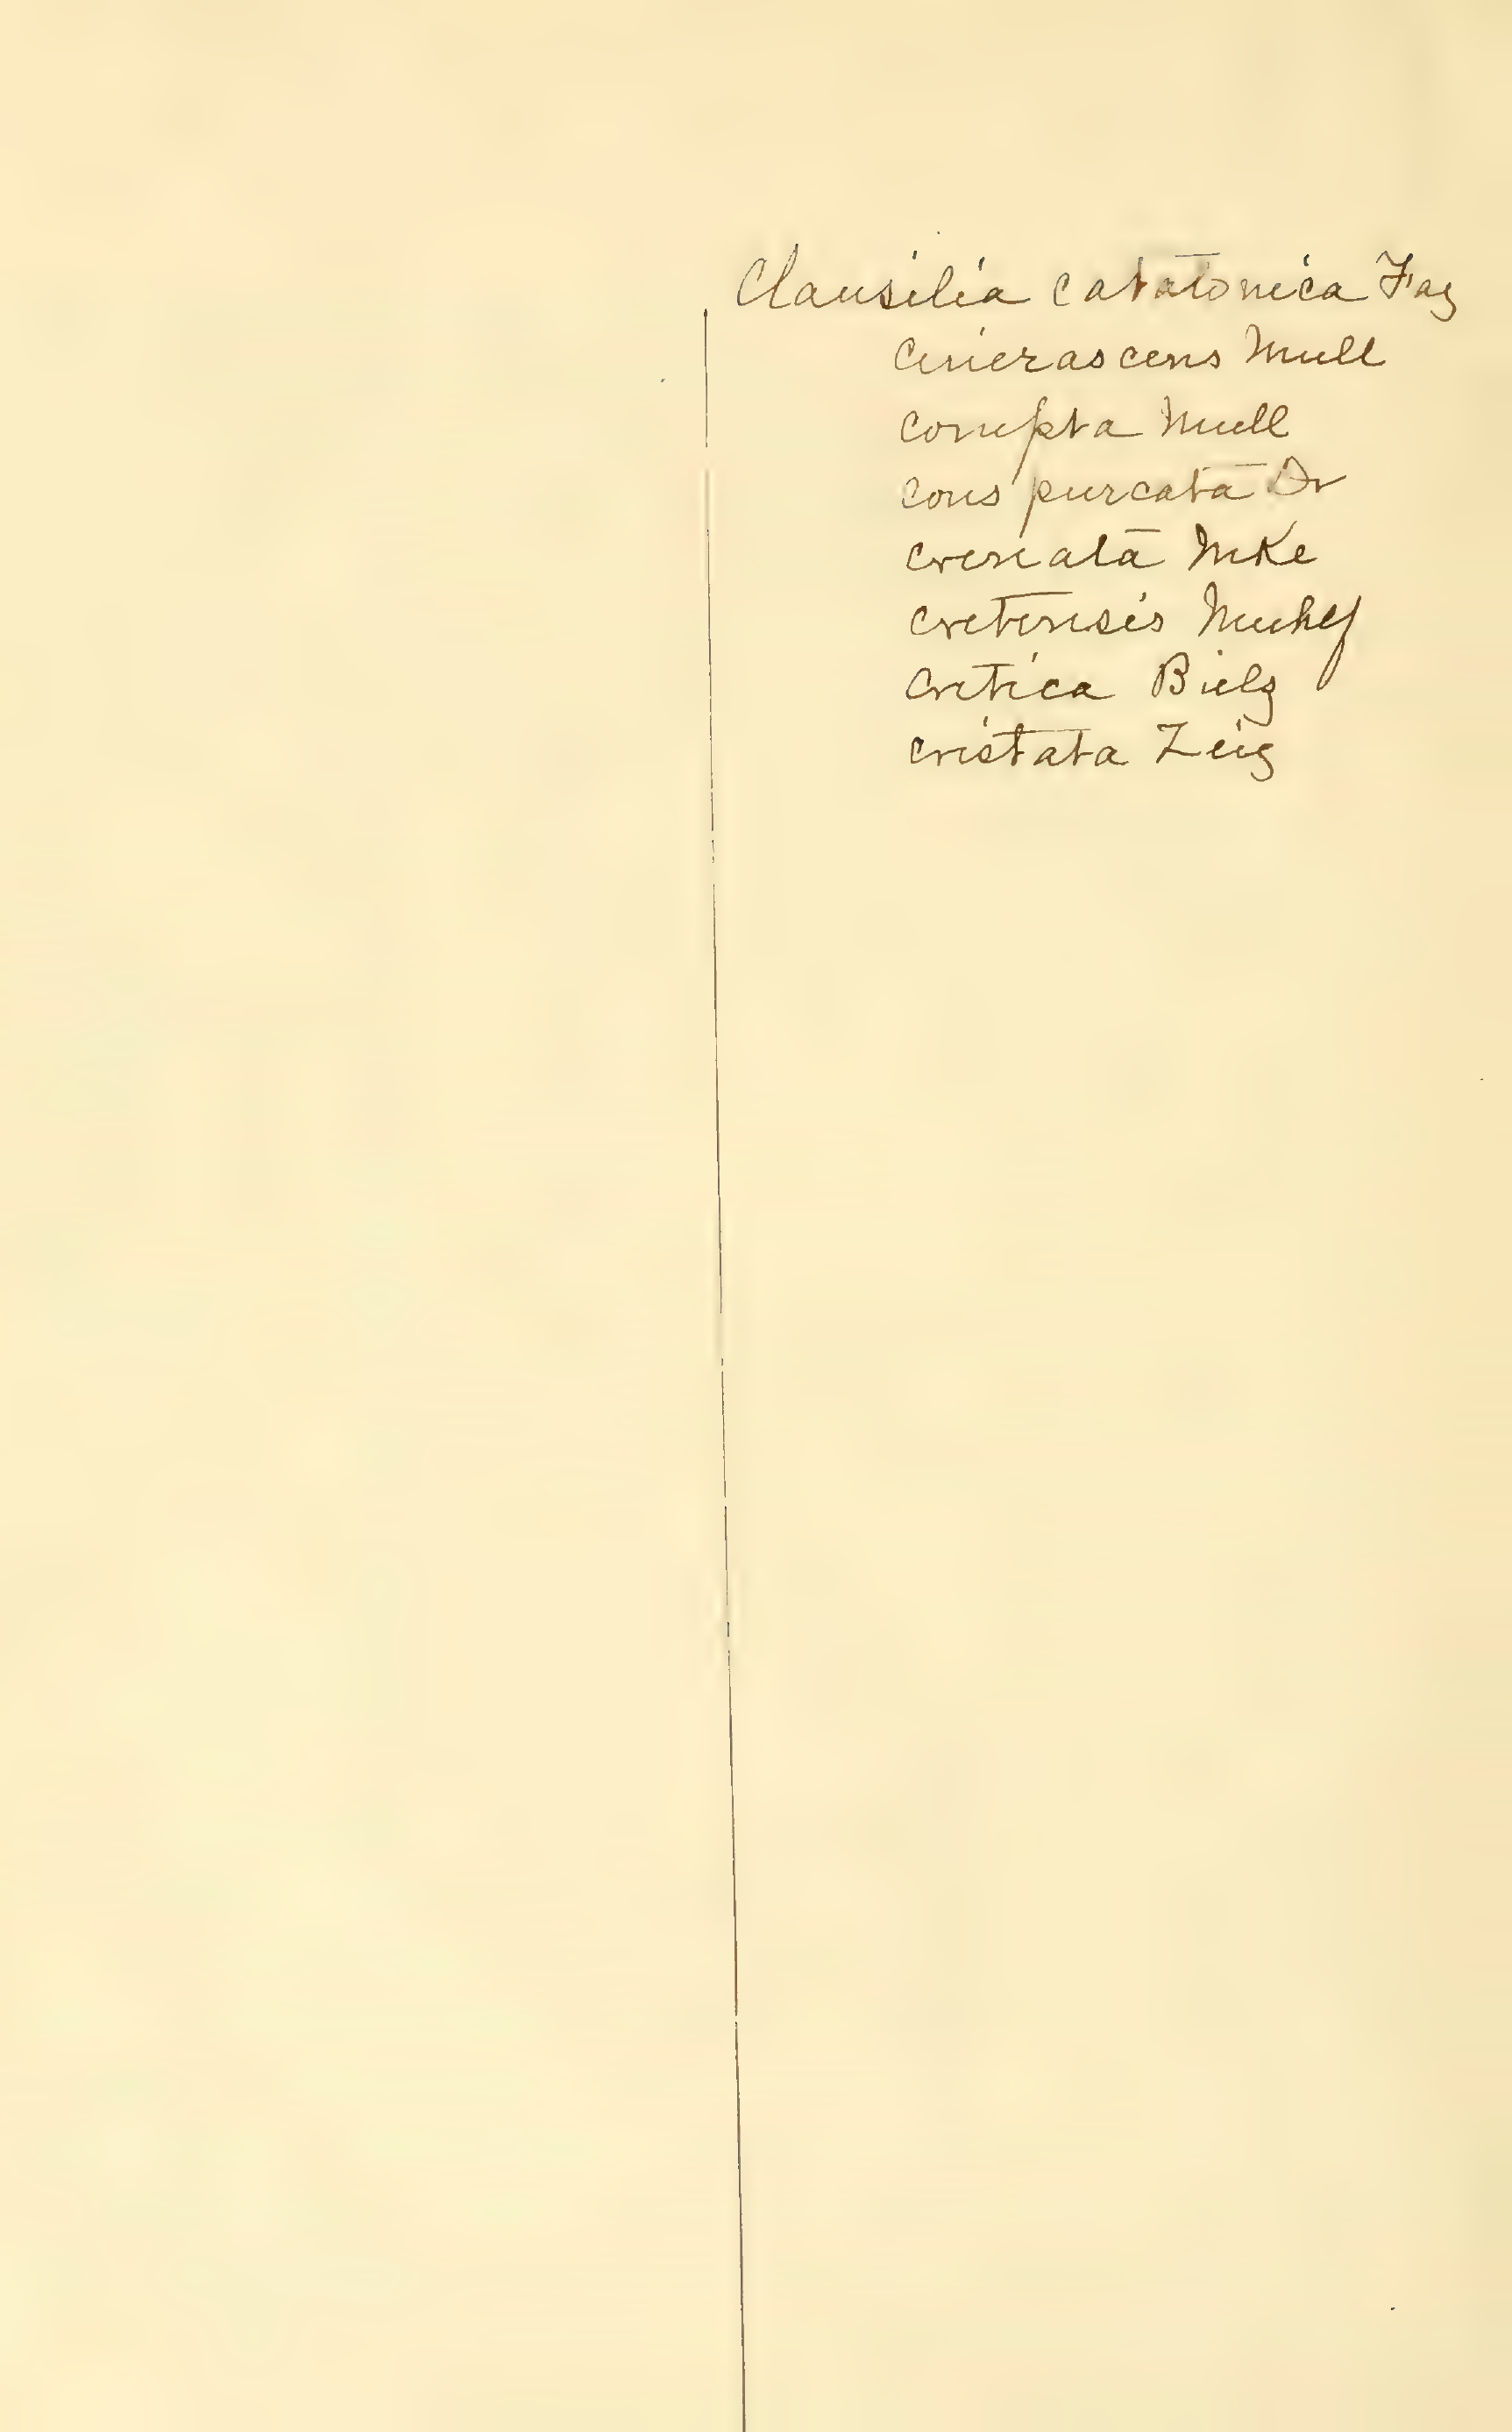 Clausilia catatonica Fag
cinerascens Mull
compta Mull
conspurcata Dr
crenata Mke
cretensis Muhlf
critica Bielz
cristata Zeig